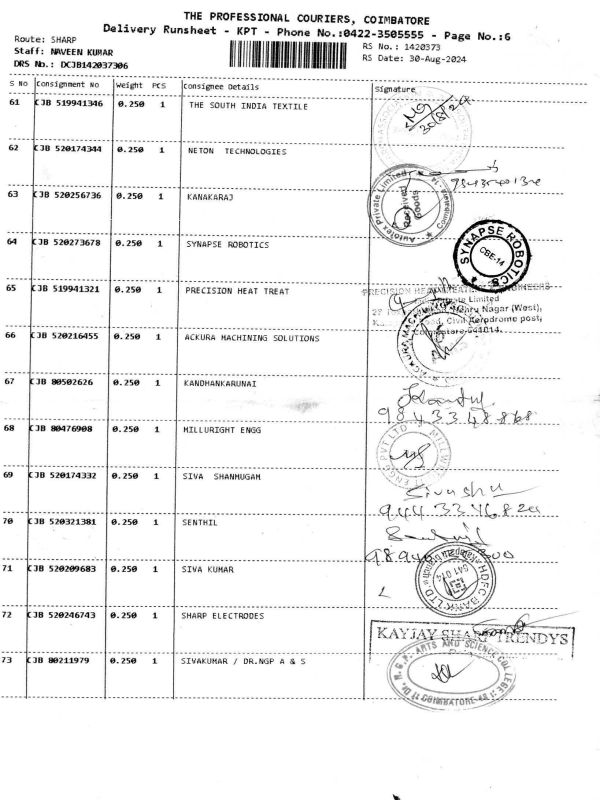 THE PROFESSIONAL COURIERS, COIMBATORE
Delivery Runsheet - KPT - Phone No.:0422-3505555 - Page No.:6
Route: SHARP
RS No. : 1420373
Staff: NAVEEN KUMAR
RS Date: 30-Aug-2024
DRS No.: DCJB142037306
S No Consignment No Weight PCS Consignee Details Signature
61 CJB 519941346 0.250 1 THE SOUTH INDIA TEXTILE
30/8/24
62 CJB 520174344 0.250 1 NETON TECHNOLOGIES
63 CJB 520256736 0.250 1 KANAKARAJ
Autotex Private Limited
Goods Received
64 CJB 520273678 0.250 1 SYNAPSE ROBOTICS
SYNAPSE ROBOTICS
CBE-14
65 CJB 519941321 0.250 1 PRECISION HEAT TREAT
Limited
Nehru Nagar (West),
Civil Aerodrome post,
Coimbatore-641014.
66 CJB 520216455 0.250 1 ACKURA MACHINING SOLUTIONS
67 CJB 80502626 0.250 1 KANDHANKARUNAI
98433 48868
68 CJB 80476908 0.250 1 MILLURIGHT ENGG
69 CJB 520174332 0.250 1 SIVA SHANMUGAM
70 CJB 520321381 0.250 1 SENTHIL
71 CJB 520209683 0.250 1 SIVA KUMAR
HDFC BANK LTD.
641 014
72 CJB 520246743 0.250 1 SHARP ELECTRODES
KAYJAY SHARP TRENDYS
73 CJB 80211979 0.250 1 SIVAKUMAR / DR.NGP A & S
Dr. N.G.P. ARTS AND SCIENCE COLLEGE
COIMBATORE-48